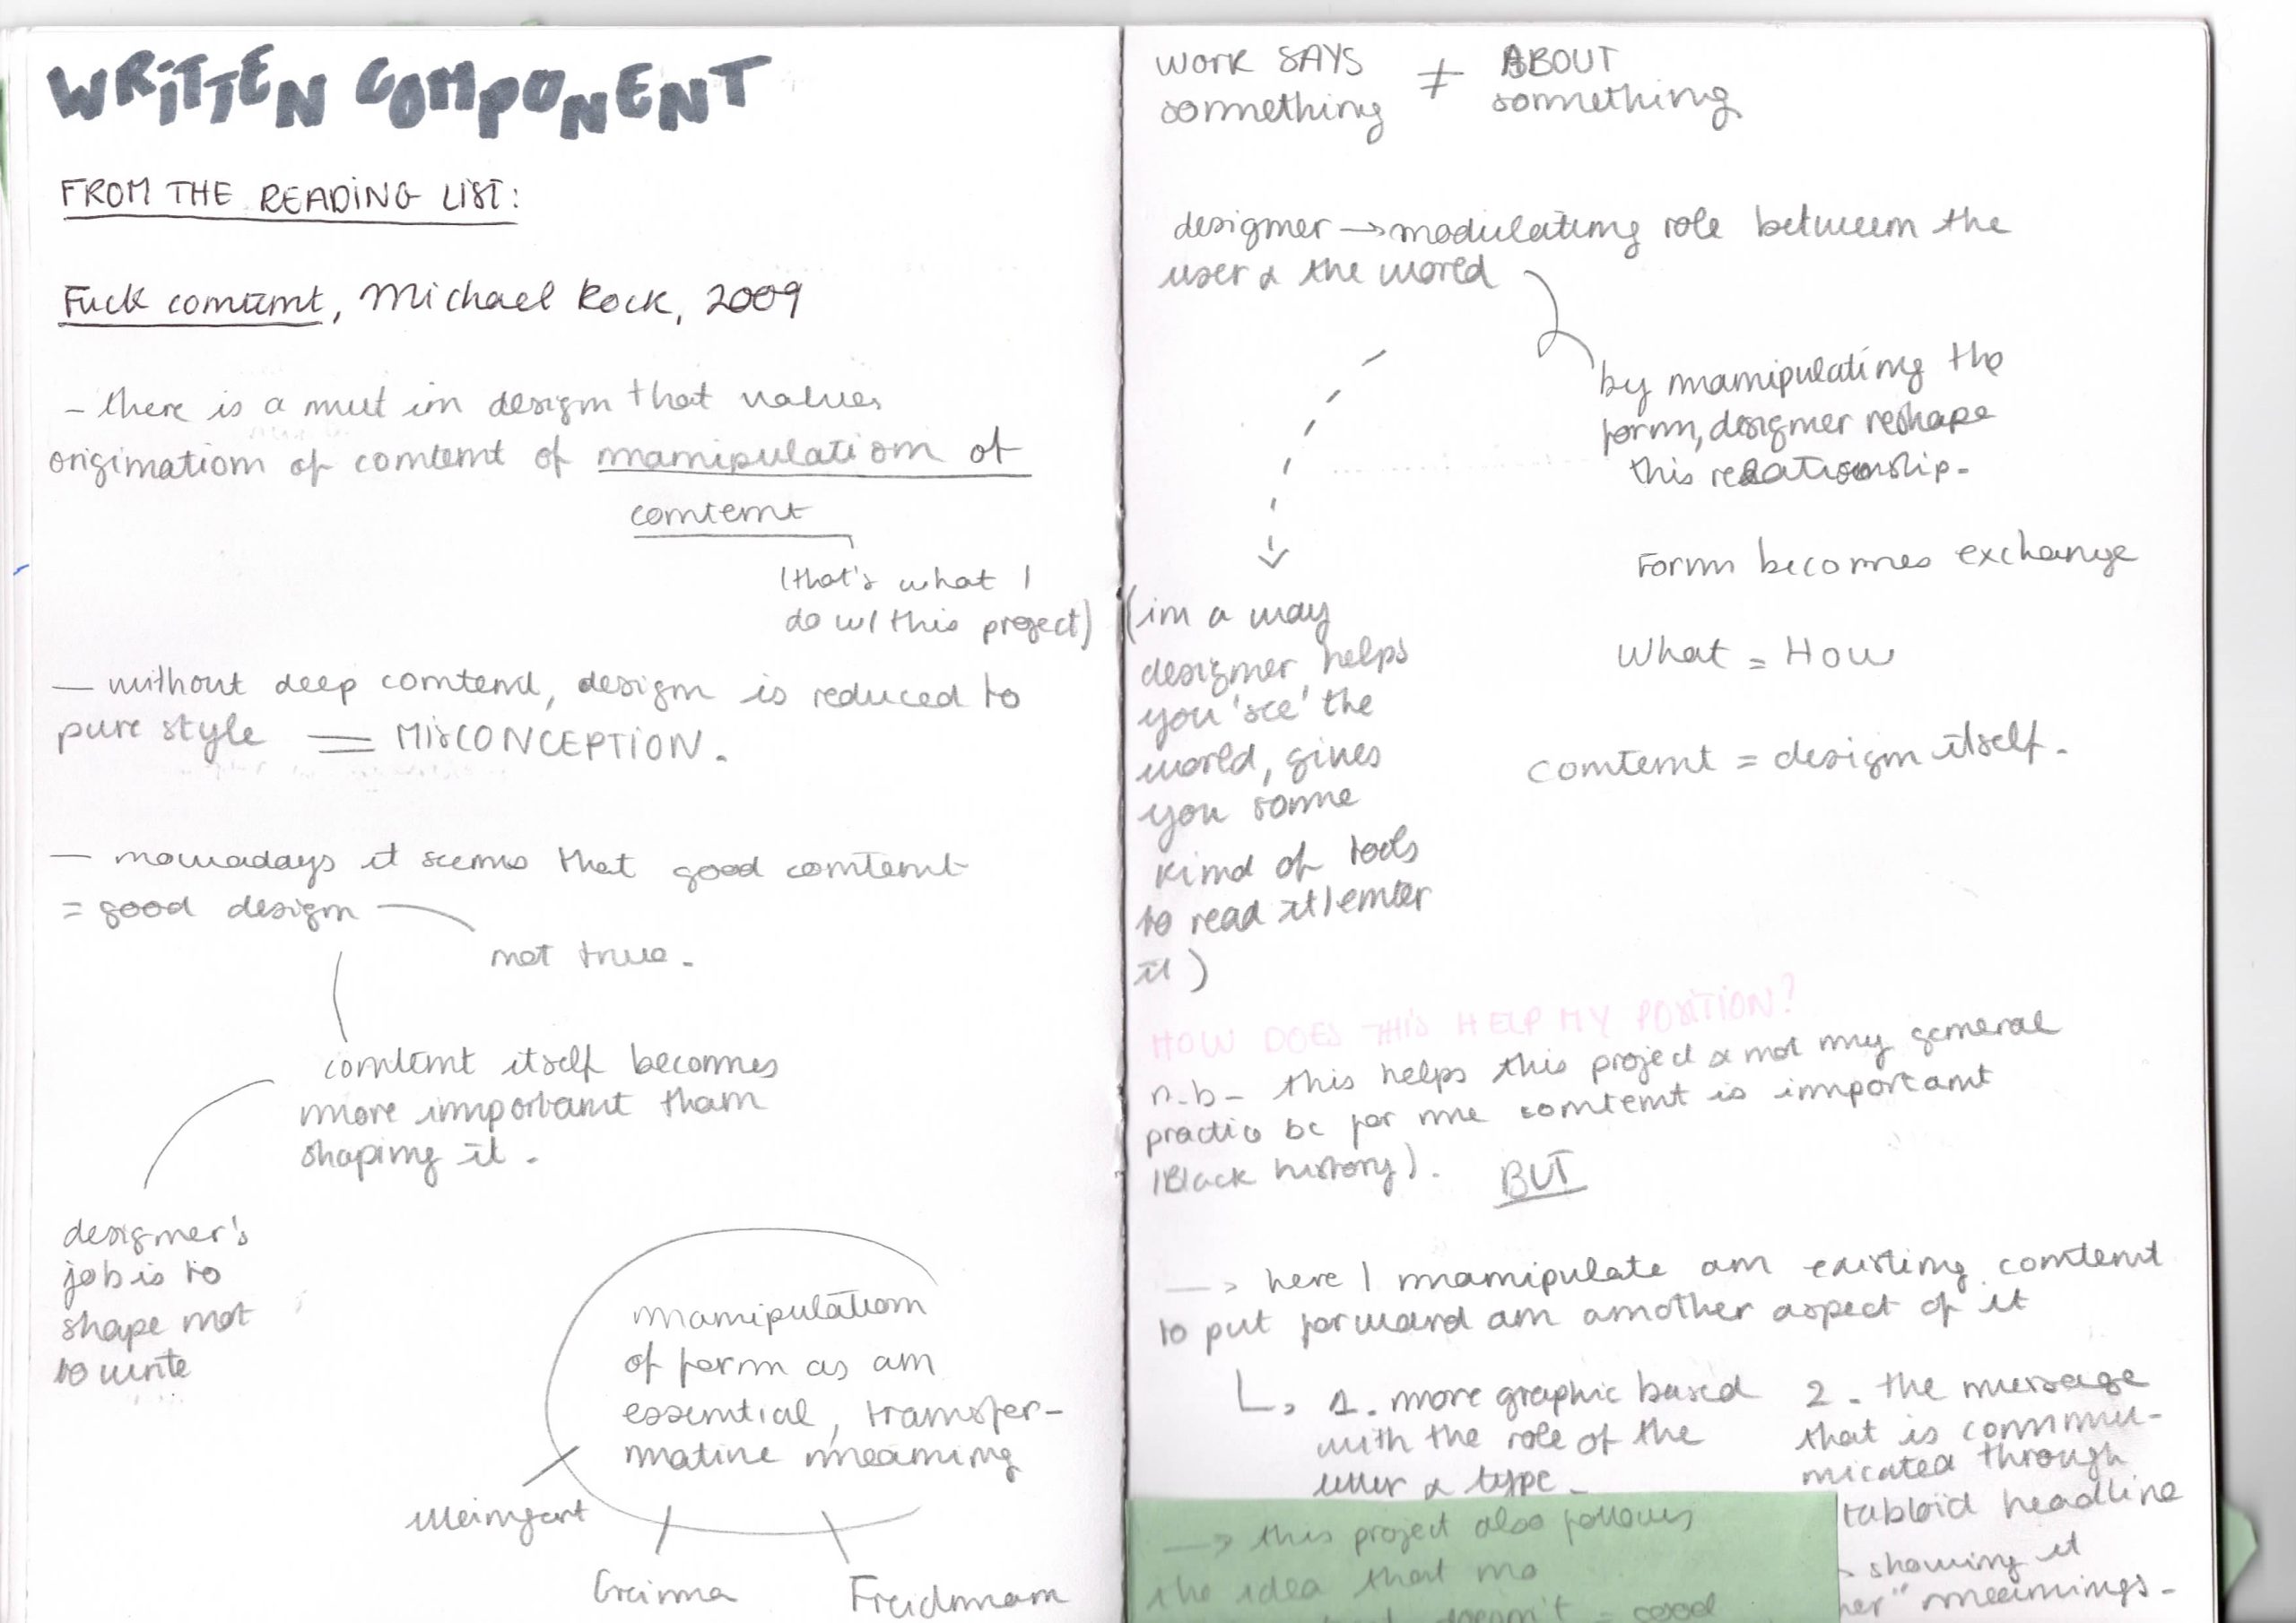 WRITTEN COMPONENT
FROM THE READING LIST:
Fuck content, Michael Rock, 2009
- there is a mut in design that values
origination of content of manipulation of
content
(that's what I
do w/ this project)
- without deep contend, design is reduced to
pure style = MISCONCEPTION.
- nowadays it seems that good content
= good design
not true.
content itself becomes
more important than
shaping it.
designer's
job is to
shape not
to write
manipulation
of form as an
essential, transfor-
mative meaning
Weingart
Greinna
Freidmnam
WORK SAYS ≠ ABOUT
something something
designer → modulating role between the
user & the world
by manipulating the
form, designer reshape
this relationship.
Form becomes exchange
What = How
content = design itself.
(in a way
designer helps
you 'see' the
world, gives
you some
kind of tools
to read it/enter
it)
HOW DOES THIS HELP MY POSITION?
n.b - this helps this project & not my general
practice bc for me content is important
(Black history). BUT
→ here I manipulate an existing content
to put forward an another aspect of it
↳ 1. more graphic based
with the role of the
letter & type.
2. the message
that is commu-
nicated through
tabloid headline
showing it
her" meanings.
→ this project also follows
the idea that no
doesn't = good